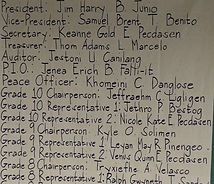 President: Jim Harry B. Junio
Vice-President: Samuel Brent T. Benito
Secretary: Keanne Gold E. Pecdasen
Treasurer: Thom Adams L. Marcelo
Auditor: Jestoni U. Canilang
P.I.O.: Jenea Erich B. Falti-it
Peace Officer: Khomeini C. Danglose
Grade 10 Chairperson: Efraehm C. Ligligen
Grade 10 Representative 1: Jethro P. Bestog
Grade 10 Representative 2: Nicole Kate E. Pecdasen
Grade 9 Chairperson: Kyle O. Solimen
Grade 9 Representative 1: Leyan May R. Pinengeo
Grade 9 Representative 2: Venus Quinn E. Pecdasen
Grade 8 Chairperson: Tryxiethe A. Velasco
Grade 8 Representative 1: Ralph Gwyneth T.